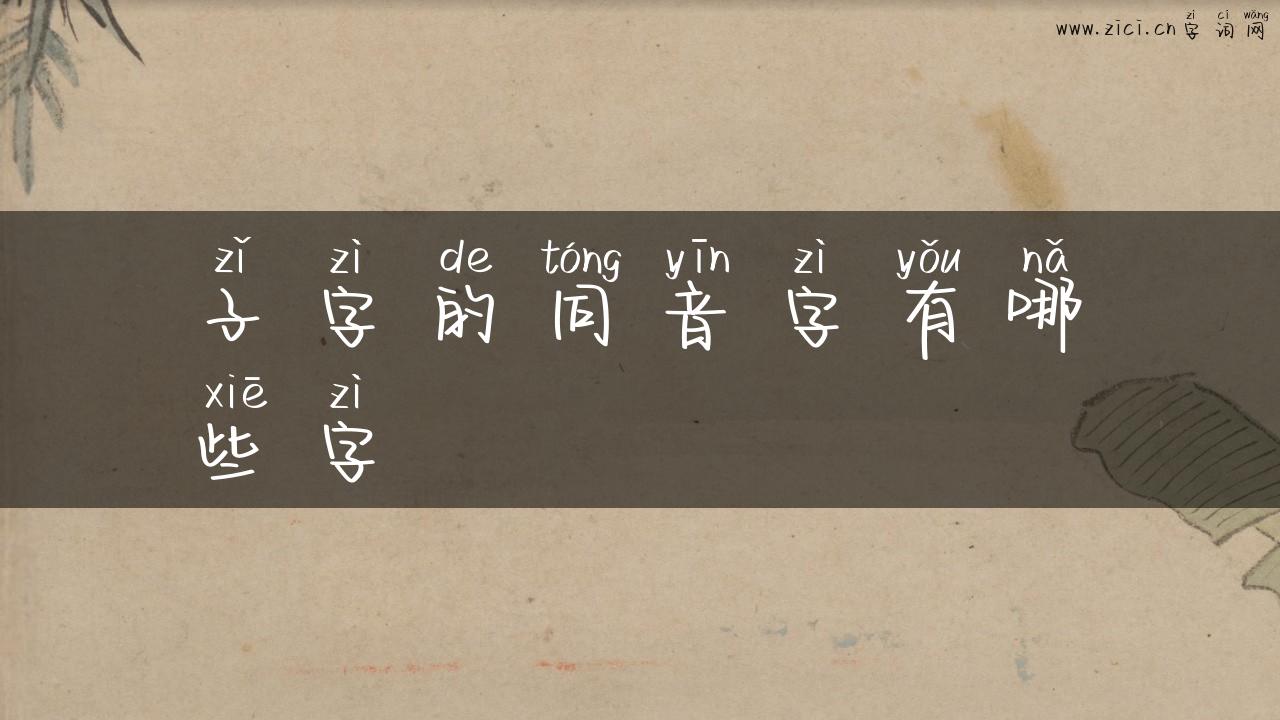 zì cí wǎng
www.zici.cn 字 词 网
zǐ zì de tóng yīn zì yǒu nǎ
子 字 的 同 音 字 有 哪
xiē zì
些 字